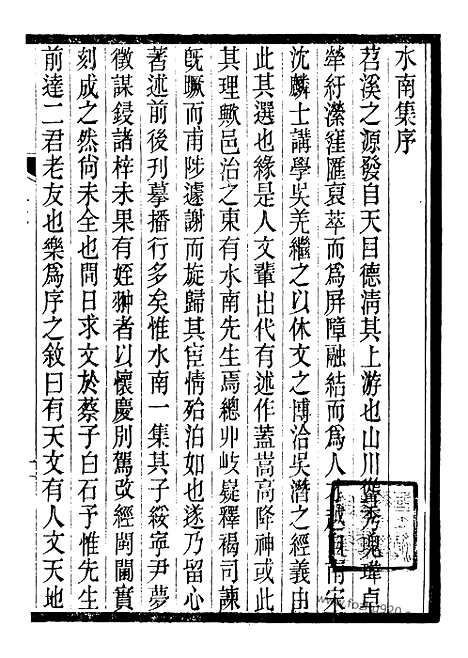 水南集序
苕溪之源發自天目德清其上游也山川毓秀瑰瑋卓
犖紆瀠窪匯裒萃而爲屏障融結而爲人越南宋
沈麟士講學吳羌繼之以休文之博洽吳潛之經義由
此其選也緣是人文輩出代有述作蓋嵩高降神或此
其理歟邑治之東有水南先生焉總丱岐嶷釋褐司諫
旣蹶而甫陟遽謝而旋歸其宦情殆泊如也遂乃留心
著述前後刊摹播行多矣惟水南一集其子綏寧尹夢
徵謀鋟諸梓未果有姪翀者以懷慶別駕改經閩閫實
刻成之然尙未全也間日求文於蔡子白石予惟先生
前達二君老友也樂爲序之敘曰有天文有人文天地